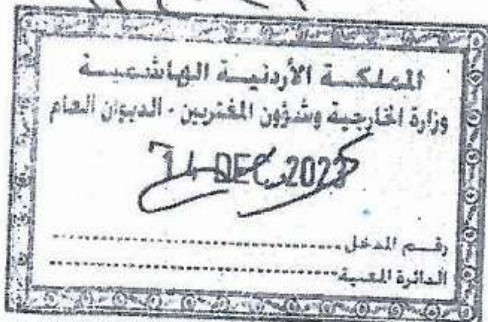 المملكة الأردنية الهاشمية
وزارة الخارجية وشؤون المغتربين - الديوان العام
14 DEC 2023
رقم المدخل
الدائرة المعنية